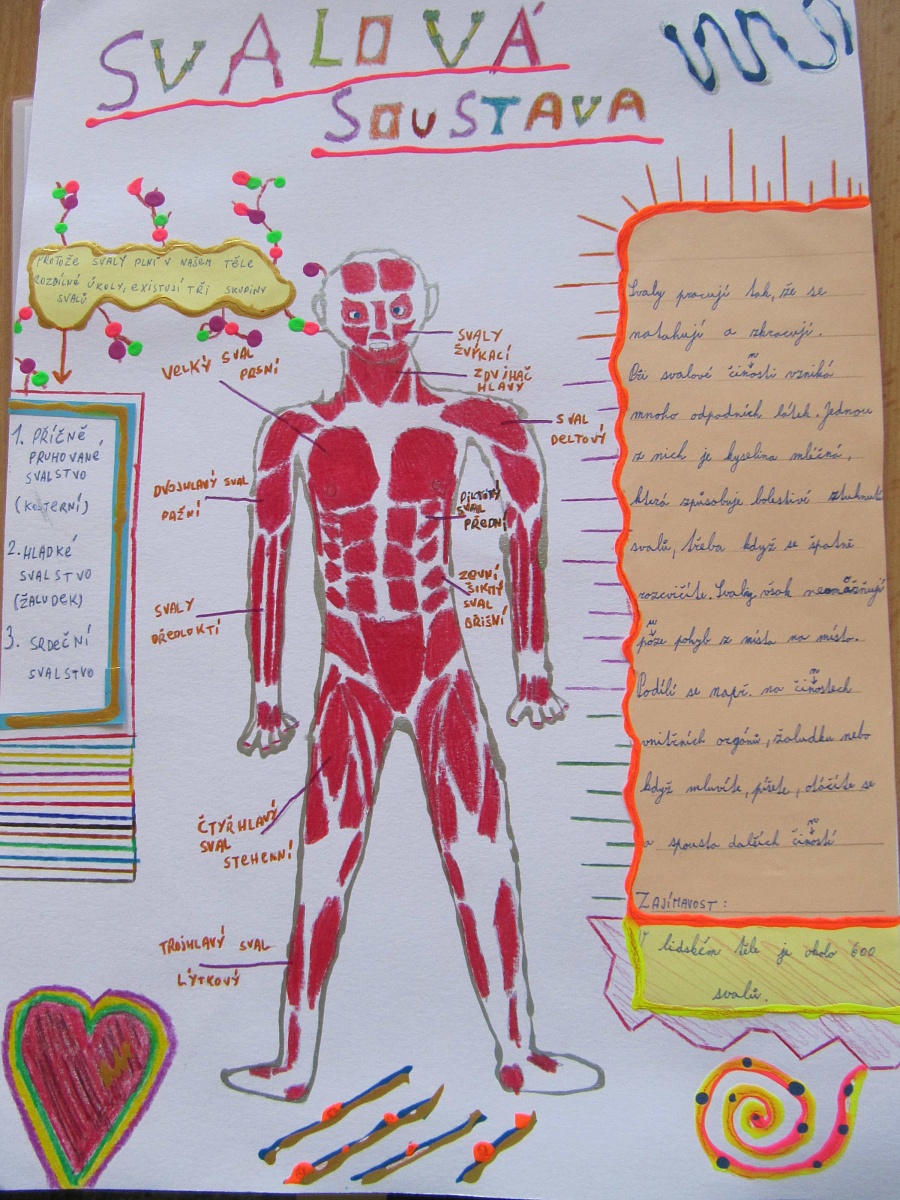 SVALOVÁ
SOUSTAVA
PROTOŽE SVALY PLNÍ V NAŠEM TĚLE
ROZDÍLNÉ ÚKOLY, EXISTUJÍ TŘI SKUPINY
SVALŮ
1. PŘÍČNĚ
PRUHOVANÉ
SVALSTVO
(KOSTERNÍ)
2. HLADKÉ
SVALSTVO
(ŽALUDEK)
3. SRDEČNÍ
SVALSTVO
VELKÝ SVAL
PRSNÍ
DVOJHLAVÝ SVAL
PAŽNÍ
SVALY
PŘEDLOKTÍ
ČTYŘHLAVÝ
SVAL
STEHENNÍ
TROJHLAVÝ SVAL
LÝTKOVÝ
SVALY
ŽVÝKACÍ
ZDVIHAČ
HLAVY
SVAL
DELTOVÝ
SVAL
PŘEDNÍ
ZEVNÍ
ŠIKMÝ
SVAL
BŘIŠNÍ
Svaly pracují tak, že se
natahují a zkracují.
Při svalové činnosti vzniká
mnoho odpadních látek. Jednou
z nich je kyselina mléčná,
která způsobuje bolestivé ztuhnutí
svalů, třeba když se špatně
rozcvičíte. Svaly však neumožňují
pouze pohyb z místa na místo.
Podílí se např. na činnostech
vnitřních orgánů, žaludku nebo
když mluvíte, píšete, otáčíte se
a spousta dalších činností
ZAJÍMAVOST:
V lidském těle je okolo 600
svalů.